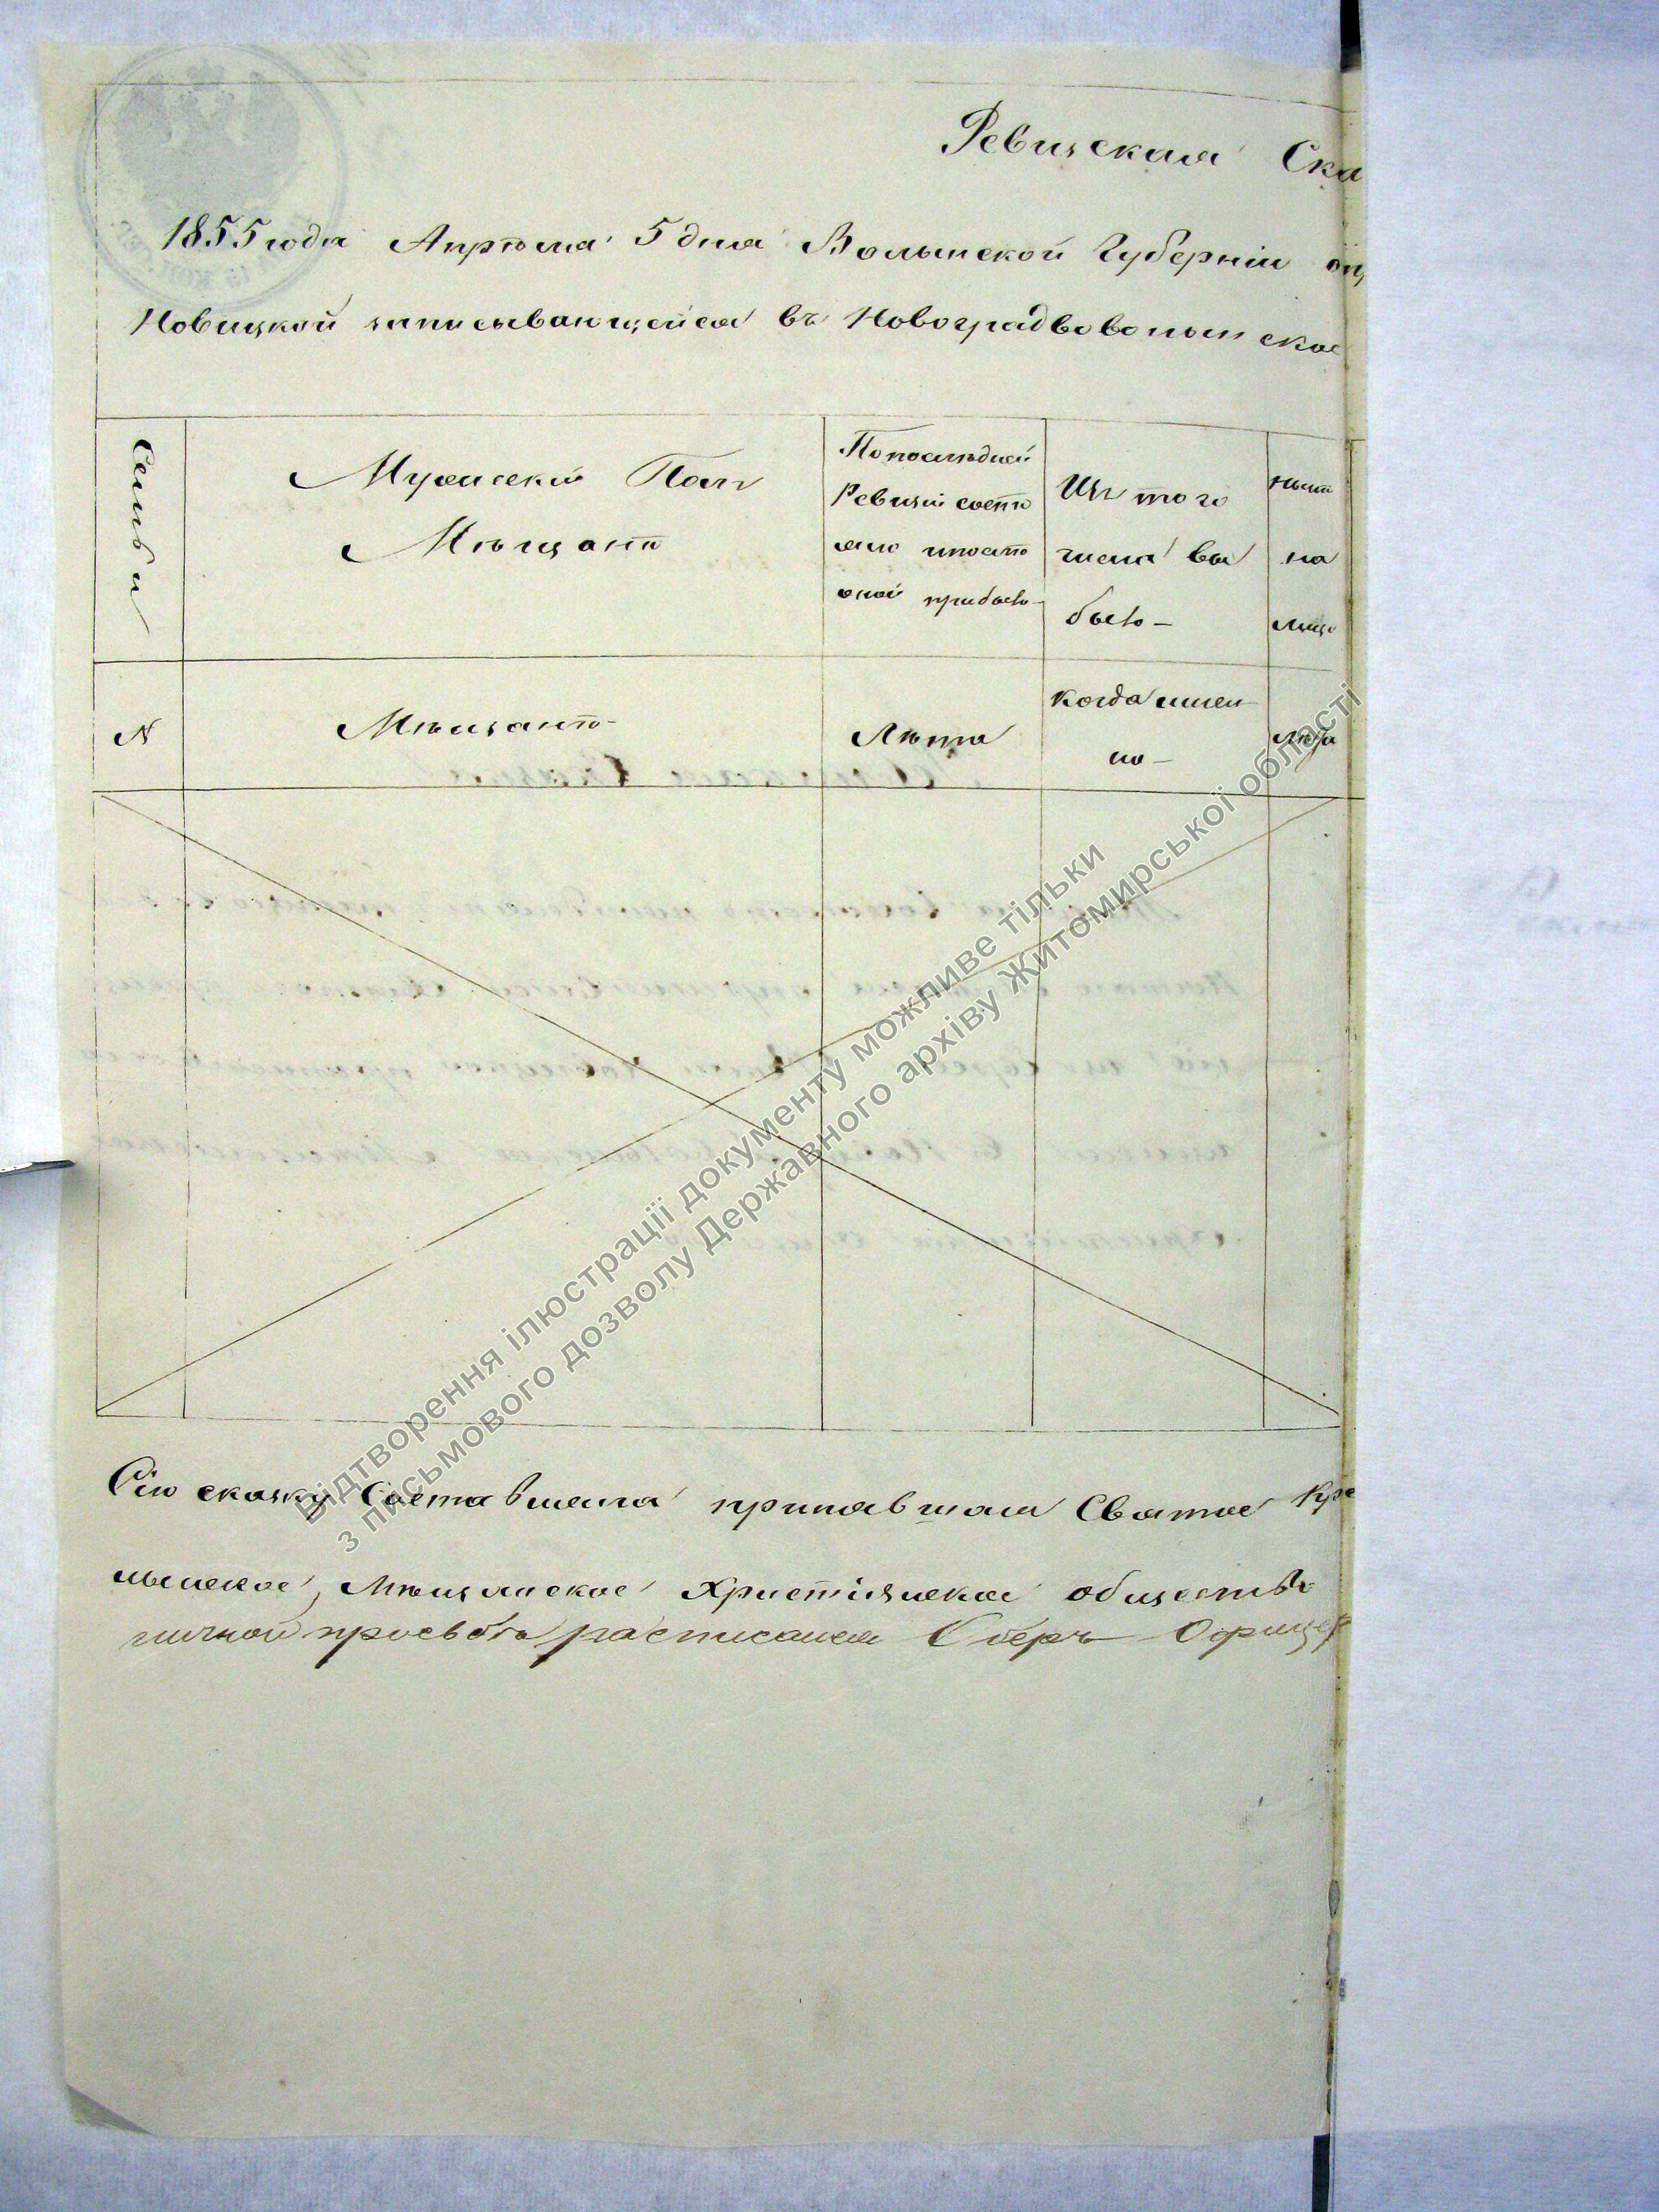 Ревизская Ска
1855 года Апрѣля 5 дня Волынской Губерніи
Новицкой записывающейся въ Новоградволынское
Семьи
Мужескій Полъ
Мѣщанъ
По послѣдней
Ревизіи состо
яло и послѣ
оной прибыло
Изъ того
числа вы
было
Нынѣ
на
лицо
№
Мѣщанъ
Лѣта
когда имен
но
Лѣта
Сію сказку Составлена принявшая Святое Кре
лынское, Мѣщанское Христіянское общество
личной просьбѣ росписался Оберъ Офицер
Відтворення ілюстрації документу можливе тільки
з письмового дозволу Державного архіву Житомирської області